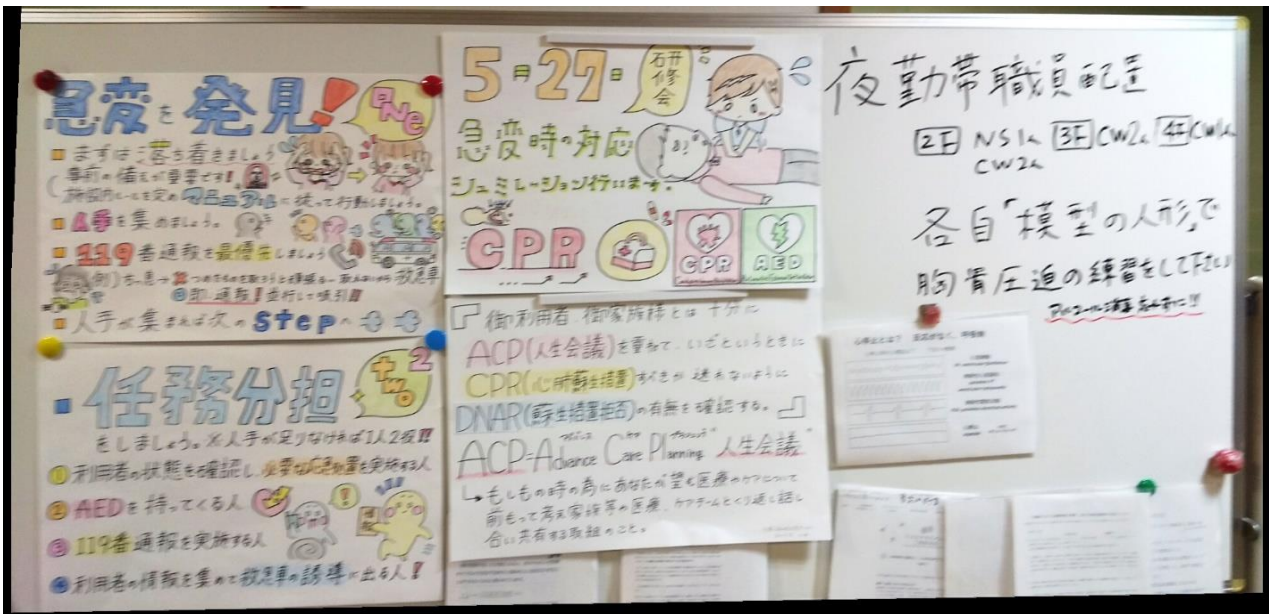 急変を発見!
ONE
■まずは落ち着きましょう
(事前の備えが重要です!
施設内ルールを定めマニュアルに従って行動しましょう。
■人手を集めましょう。
■119番通報を最優先しましょう
即、通報!並行して吸引!!
■人手が集まれば次のStepへ
■任務分担
two
をしましょう。※人手が足りなければ1人2役!!
①利用者の状態を確認し、必要な応急処置を実施する人
②AEDを持ってくる人
③119番通報を実施する人
④利用者の情報を集めて救急車の誘導に出る人!
5月27日
研修会
急変時の対応
シュミレーション行います。
CPR
CPR
AED
『御利用者、御家族様とは十分に
ACP(人生会議)を重ねて、いざというときに
CPR(心肺蘇生措置)すべきか迷わないように
DNAR(蘇生措置拒否)の有無を確認する。』
ACP=Advance Care Planning "人生会議"
アドバンス ケア プランニング
↳もしもの時の為にあなたが望む医療やケアについて
前もって考え家族等や医療、ケアチームとくり返し話し
合い共有する取組のこと。
夜勤帯職員配置
2F NS1人 3F CW2人 4F CW1人
CW2人
各自「模型の人形」で
胸骨圧迫の練習をして下さい
心停止とは?